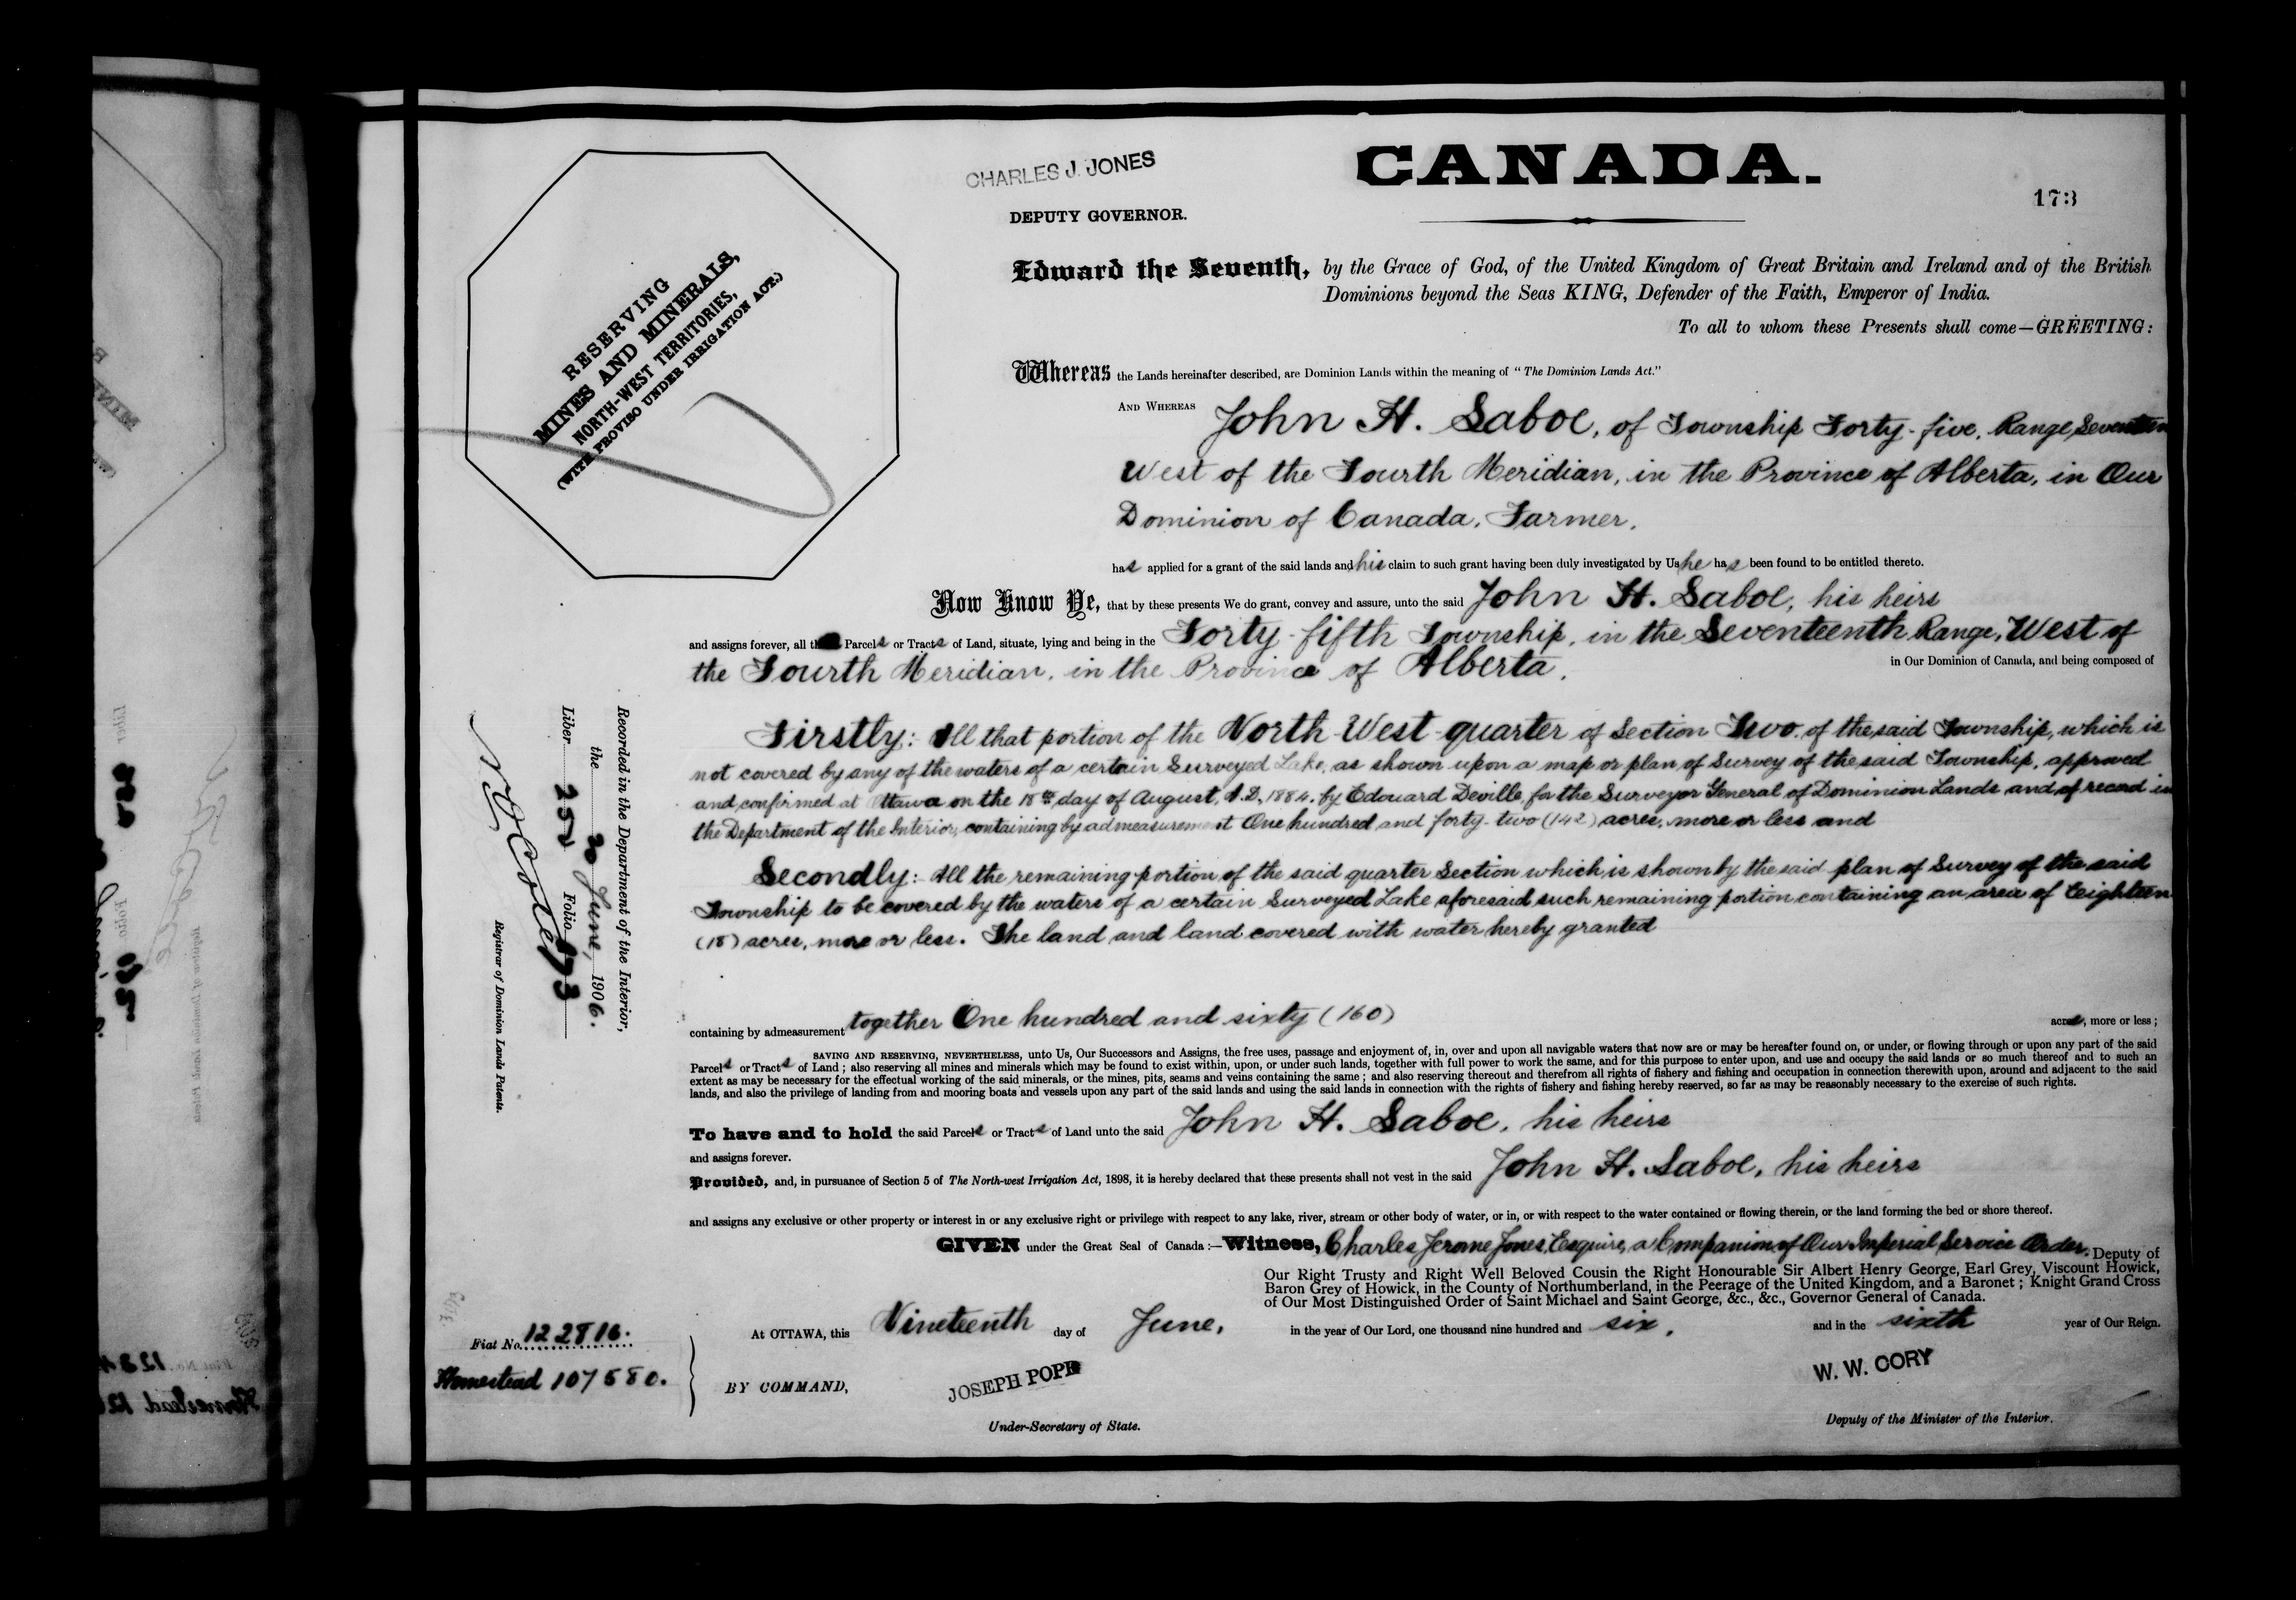 CHARLES J. JONES
CANADA.
173
DEPUTY GOVERNOR.
RESERVING
MINES AND MINERALS,
NORTH-WEST TERRITORIES,
(WITH PROVISO UNDER IRRIGATION ACT.)
Edward the Seventh, by the Grace of God, of the United Kingdom of Great Britain and Ireland and of the British
Dominions beyond the Seas KING, Defender of the Faith, Emperor of India.
To all to whom these Presents shall come—GREETING:
Whereas the Lands hereinafter described, are Dominion Lands within the meaning of "The Dominion Lands Act."
AND WHEREAS John H. Saboe, of Township Forty-five, Range Seventeen
West of the Fourth Meridian, in the Province of Alberta, in Our
Dominion of Canada, Farmer,
has applied for a grant of the said lands and his claim to such grant having been duly investigated by Us he has been found to be entitled thereto.
Now Know Ye, that by these presents We do grant, convey and assure, unto the said John H. Saboe, his heirs
and assigns forever, all Parcels or Tracts of Land, situate, lying and being in the Forty-fifth Township, in the Seventeenth Range, West of
the Fourth Meridian, in the Province of Alberta, in Our Dominion of Canada, and being composed of
Firstly: All that portion of the North-West-quarter of Section Two of the said Township, which is
not covered by any of the waters of a certain Surveyed Lake, as shown upon a map or plan of Survey of the said Township, approved
and confirmed at Ottawa on the 18th day of August, A.D. 1884, by Edouard Deville, for the Surveyor General of Dominion Lands and of record in
the Department of the Interior, containing by admeasurement One hundred and forty-two (142) acres, more or less and
Secondly: All the remaining portion of the said quarter Section which is shown by the said plan of Survey of the said
Township to be covered by the waters of a certain Surveyed Lake aforesaid such remaining portion containing an area of Eighteen
(18) acres, more or less. The land and land covered with water hereby granted
containing by admeasurement together One hundred and sixty (160) acres, more or less;
SAVING AND RESERVING, NEVERTHELESS, unto Us, Our Successors and Assigns, the free uses, passage and enjoyment of, in, over and upon all navigable waters that now are or may be hereafter found on, or under, or flowing through or upon any part of the said
Parcels or Tracts of Land; also reserving all mines and minerals which may be found to exist within, upon, or under such lands, together with full power to work the same, and for this purpose to enter upon, and use and occupy the said lands or so much thereof and to such an
extent as may be necessary for the effectual working of the said minerals, or the mines, pits, seams and veins containing the same; and also reserving thereout and therefrom all rights of fishery and fishing and occupation in connection therewith upon, around and adjacent to the said
lands, and also the privilege of landing from and mooring boats and vessels upon any part of the said lands and using the said lands in connection with the rights of fishery and fishing hereby reserved, so far as may be reasonably necessary to the exercise of such rights.
To have and to hold the said Parcels or Tracts of Land unto the said John H. Saboe, his heirs
and assigns forever.
Provided, and, in pursuance of Section 5 of The North-west Irrigation Act, 1898, it is hereby declared that these presents shall not vest in the said John H. Saboe, his heirs
and assigns any exclusive or other property or interest in or any exclusive right or privilege with respect to any lake, river, stream or other body of water, or in, or with respect to the water contained or flowing therein, or the land forming the bed or shore thereof.
GIVEN under the Great Seal of Canada:—Witness, Charles Jerome Jones, Esquire, a Companion of Our Imperial Service Order, Deputy of
Our Right Trusty and Right Well Beloved Cousin the Right Honourable Sir Albert Henry George, Earl Grey, Viscount Howick,
Baron Grey of Howick, in the County of Northumberland, in the Peerage of the United Kingdom, and a Baronet; Knight Grand Cross
of Our Most Distinguished Order of Saint Michael and Saint George, &c., &c., Governor General of Canada.
At OTTAWA, this Nineteenth day of June, in the year of Our Lord, one thousand nine hundred and six, and in the sixth year of Our Reign.
BY COMMAND,
JOSEPH POPE
Under-Secretary of State.
W. W. CORY
Deputy of the Minister of the Interior.
Fiat No. 122816.
Homestead 107580.
Recorded in the Department of the Interior,
the 20 June, 1906.
Liber 252 Folio 173
Registrar of Dominion Lands Patents.